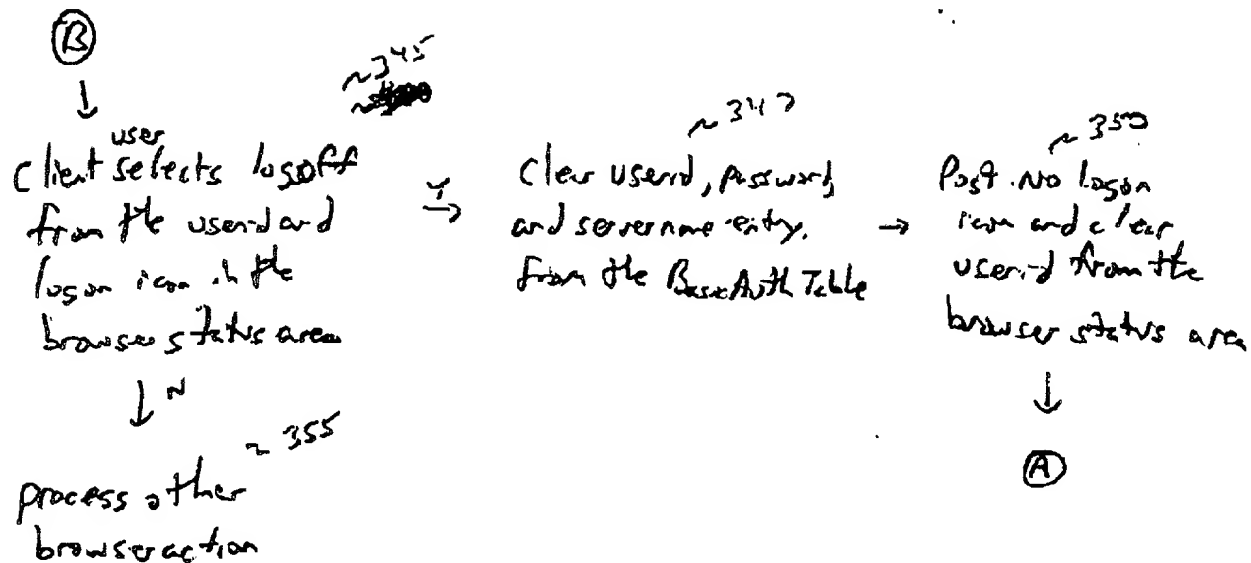 B
~345
user
Client selects logoff
from the userid and
logon icon in the
browser status area
Y
~347
Clear userid, password,
and servername entry.
from the BasicAuth Table
~350
Post No logon
icon and clear
userid from the
browser status area
A
N
~355
process other
browser action